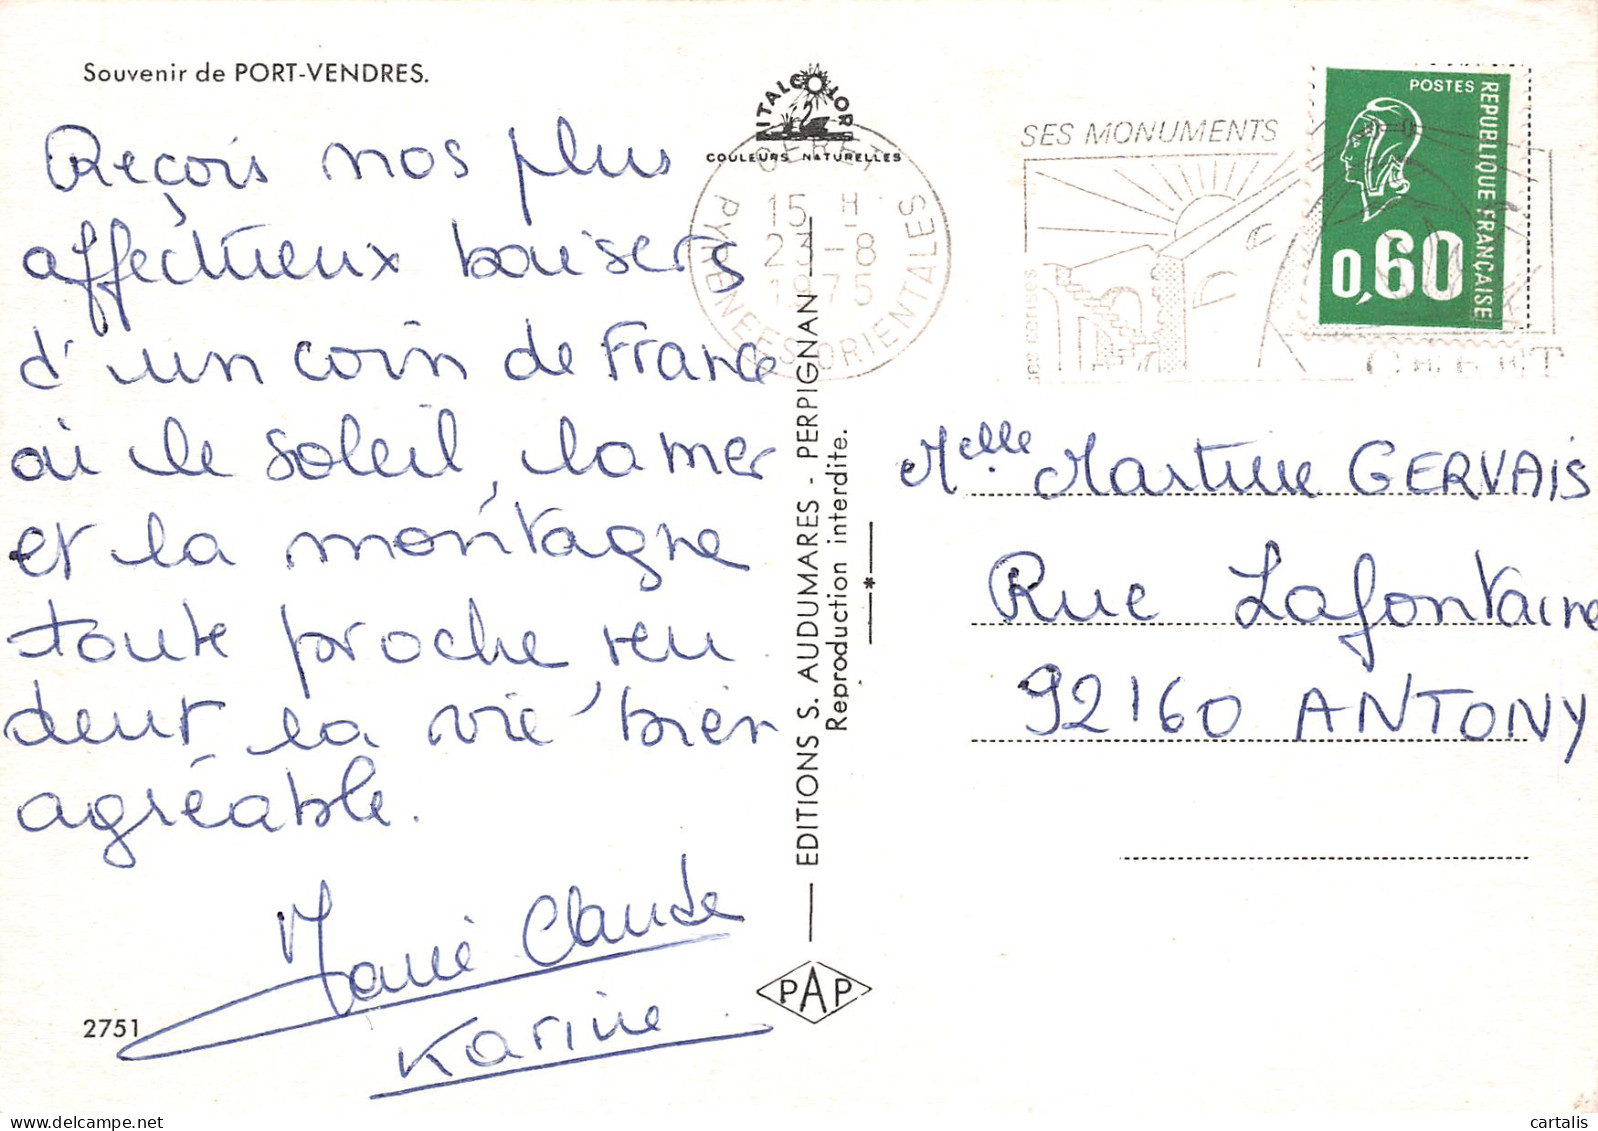 Souvenir de PORT-VENDRES.
Reçois nos plus
affectueux baisers
d'un coin de France
où le soleil, la mer
et la montagne
toute proche ren
dent la vie bien
agréable.
Marie Claude
Karine
2751
ITALCOLOR
COULEURS NATURELLES
CERET
15 H
23-8
1975
PYRENEES-ORIENTALES
EDITIONS S. AUDUMARES - PERPIGNAN
Reproduction interdite.
PAP
SES MONUMENTS
ses cerises
CERET
POSTES
REPUBLIQUE FRANÇAISE
0,60
Melle Martine GERVAIS
Rue Lafontaine
92160 ANTONY
cartalis